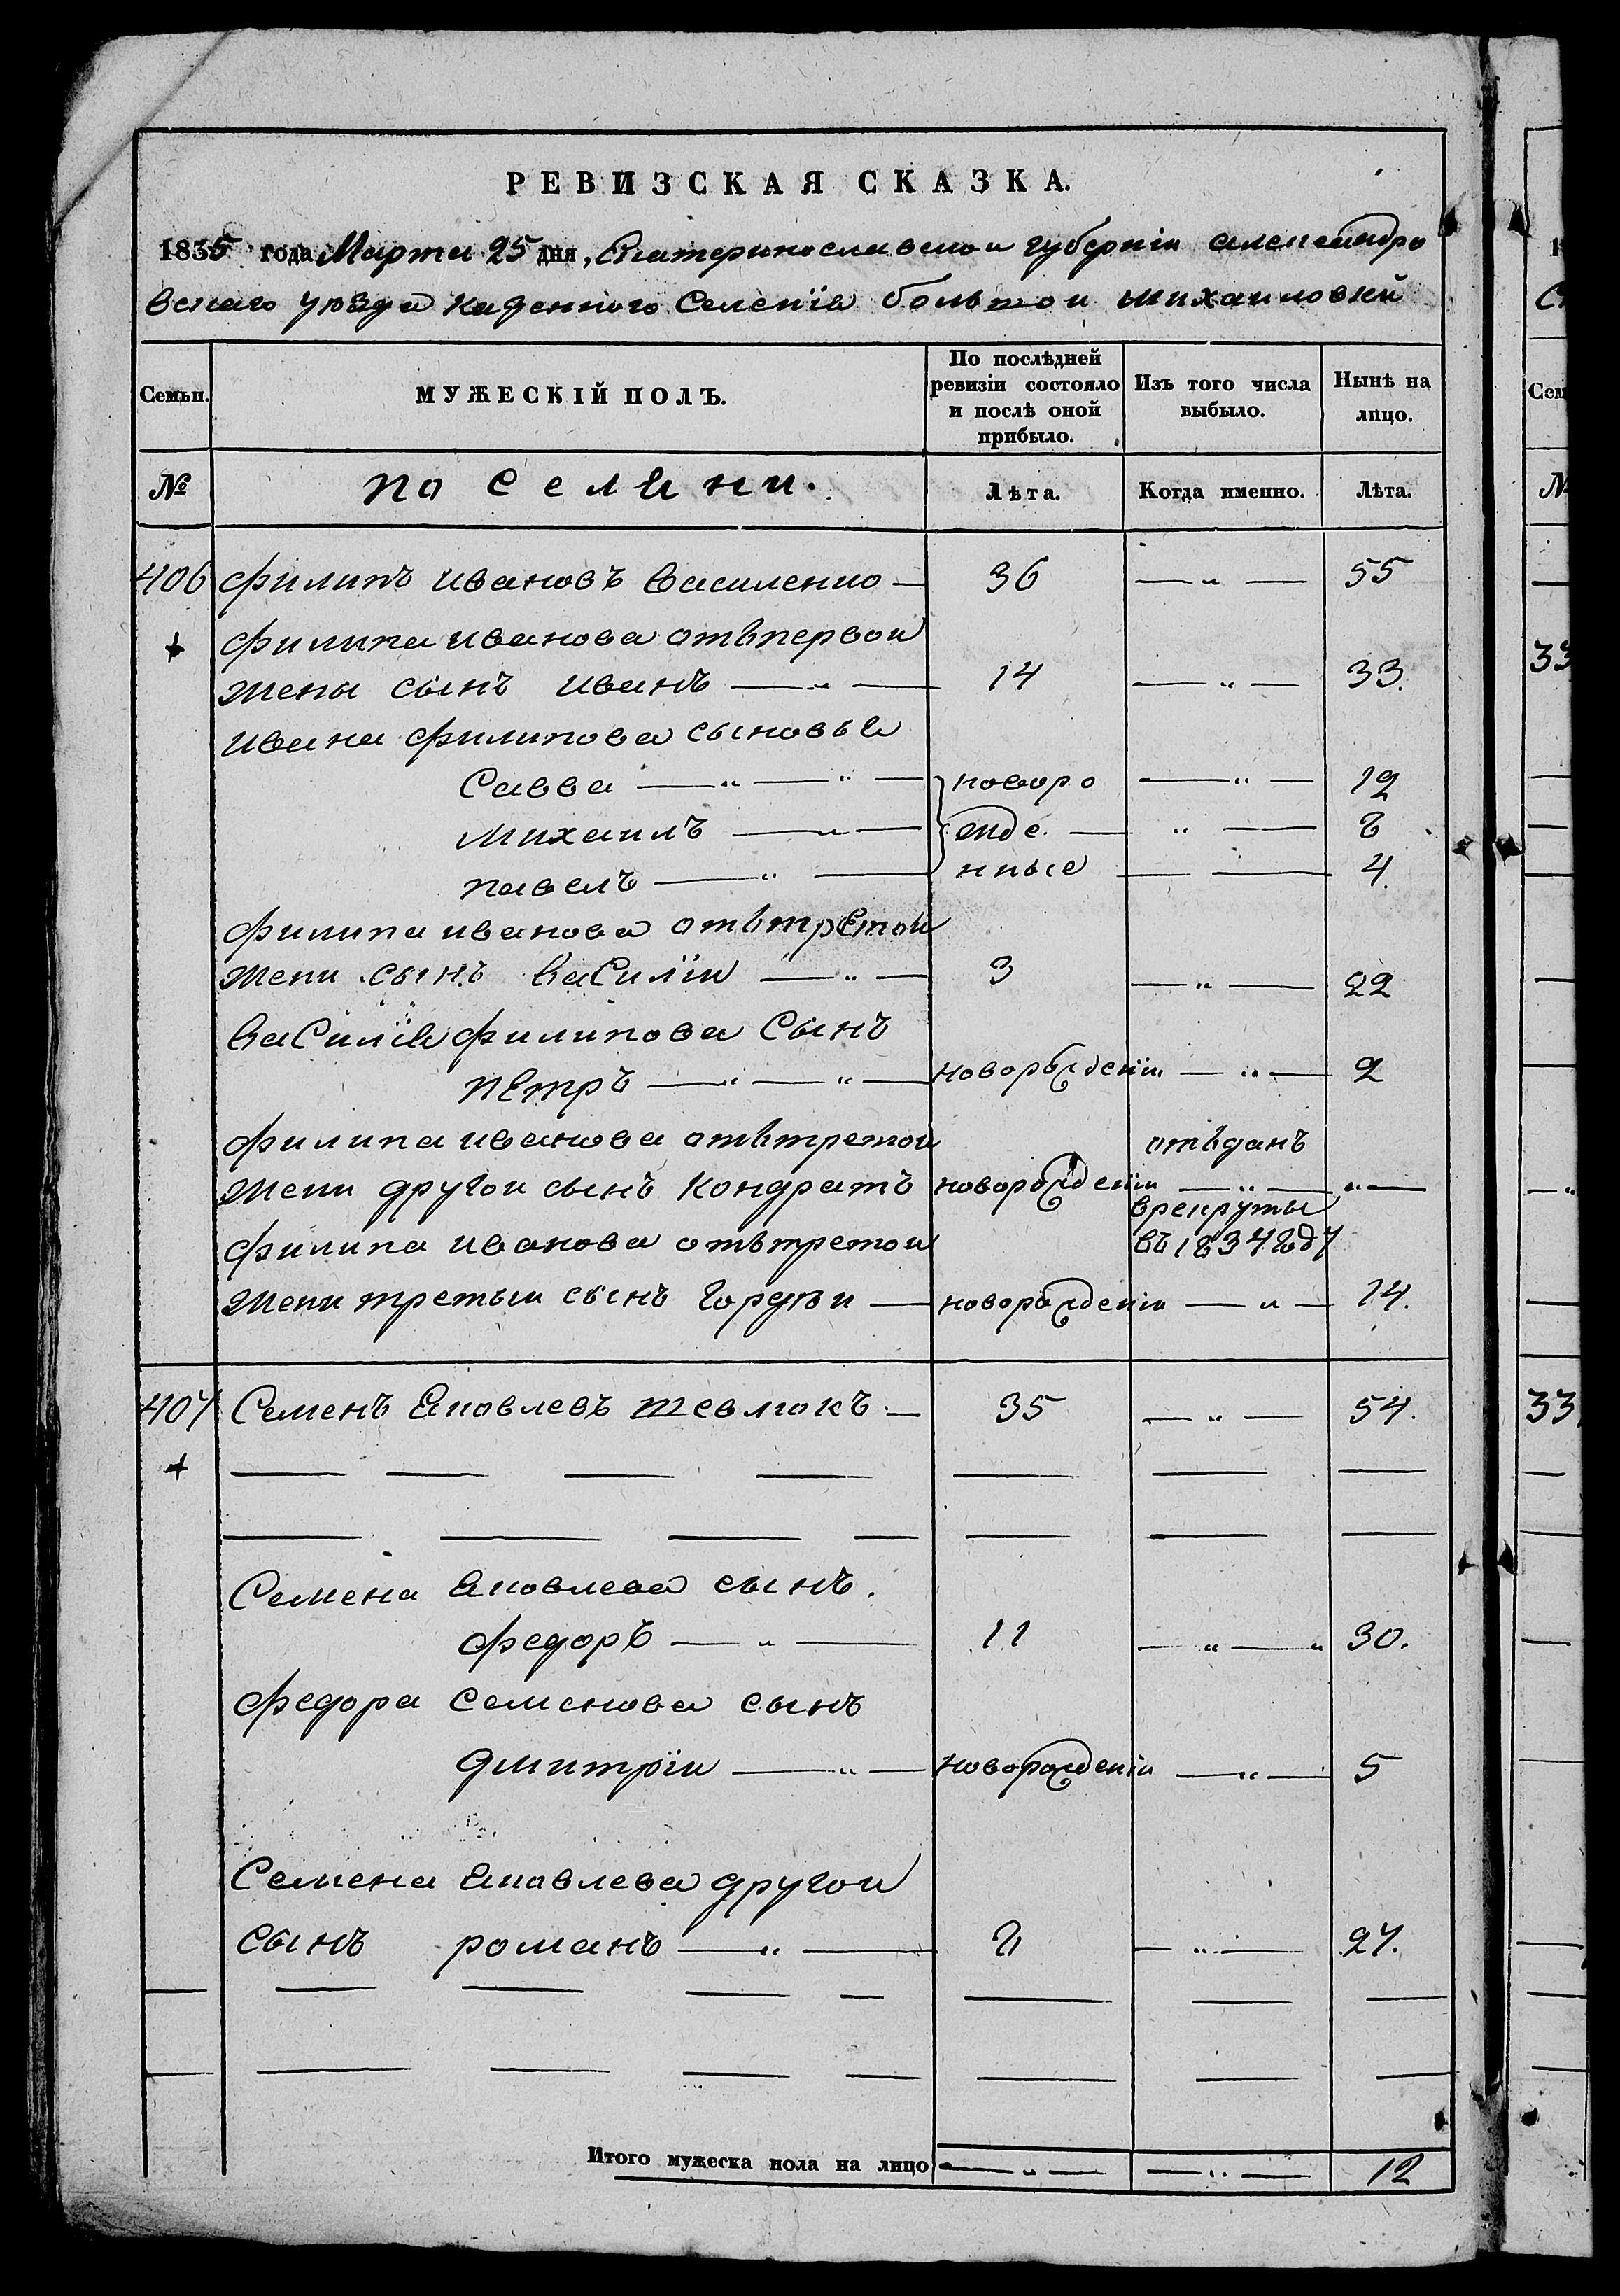 РЕВИЗСКАЯ СКАЗКА.
1835 года Марта 25 дня, Екатеринославской губерніи александро
вскаго уѣзда казенного Селенія большои михаиловки
Семьи. МУЖЕСКІЙ ПОЛЪ. По послѣдней ревизіи состояло и послѣ оной прибыло. Изъ того числа выбыло. Нынѣ на лицо.
№ по Селяни. Лѣта. Когда именно. Лѣта.
406 филипъ ивановъ василенко — 36 — „ — 55
филипа иванова отъпервои
жены сынъ иванъ — „ — 14 — „ — 33.
ивана филипова сыновья
Савва — „ — „ — новоро — „ — 12
михаилъ — „ — жде. — „ — 8
павелъ — „ — нные — — 4.
филипа иванова отътретои
жени сынъ василіи — „ — 3 — „ — 22
василія филипова Сынъ
петръ — „ — „ — новорожденіи — „ — 2
филипа иванова отътретои отъданъ
жени другои сынъ кондратъ новорожденіи — „ — „ —
врекруты
филипа иванова отътретои въ 1834 году
жени третьи сынъ гордѣи — новорожденіи — „ — 14.
407 Семенъ яковлевъ шевлюкъ — 35 — „ — 54.
Семена яковлева сынъ.
федоръ — „ — 11 — „ — „ 30.
федора семенова сынъ
дмитріи — „ — новорожденіи — „ — 5
Семена яковлева другои
сынъ романъ — „ — 8 — „ — 27.
Итого мужеска пола на лицо — „ — — „ — 12
33
33